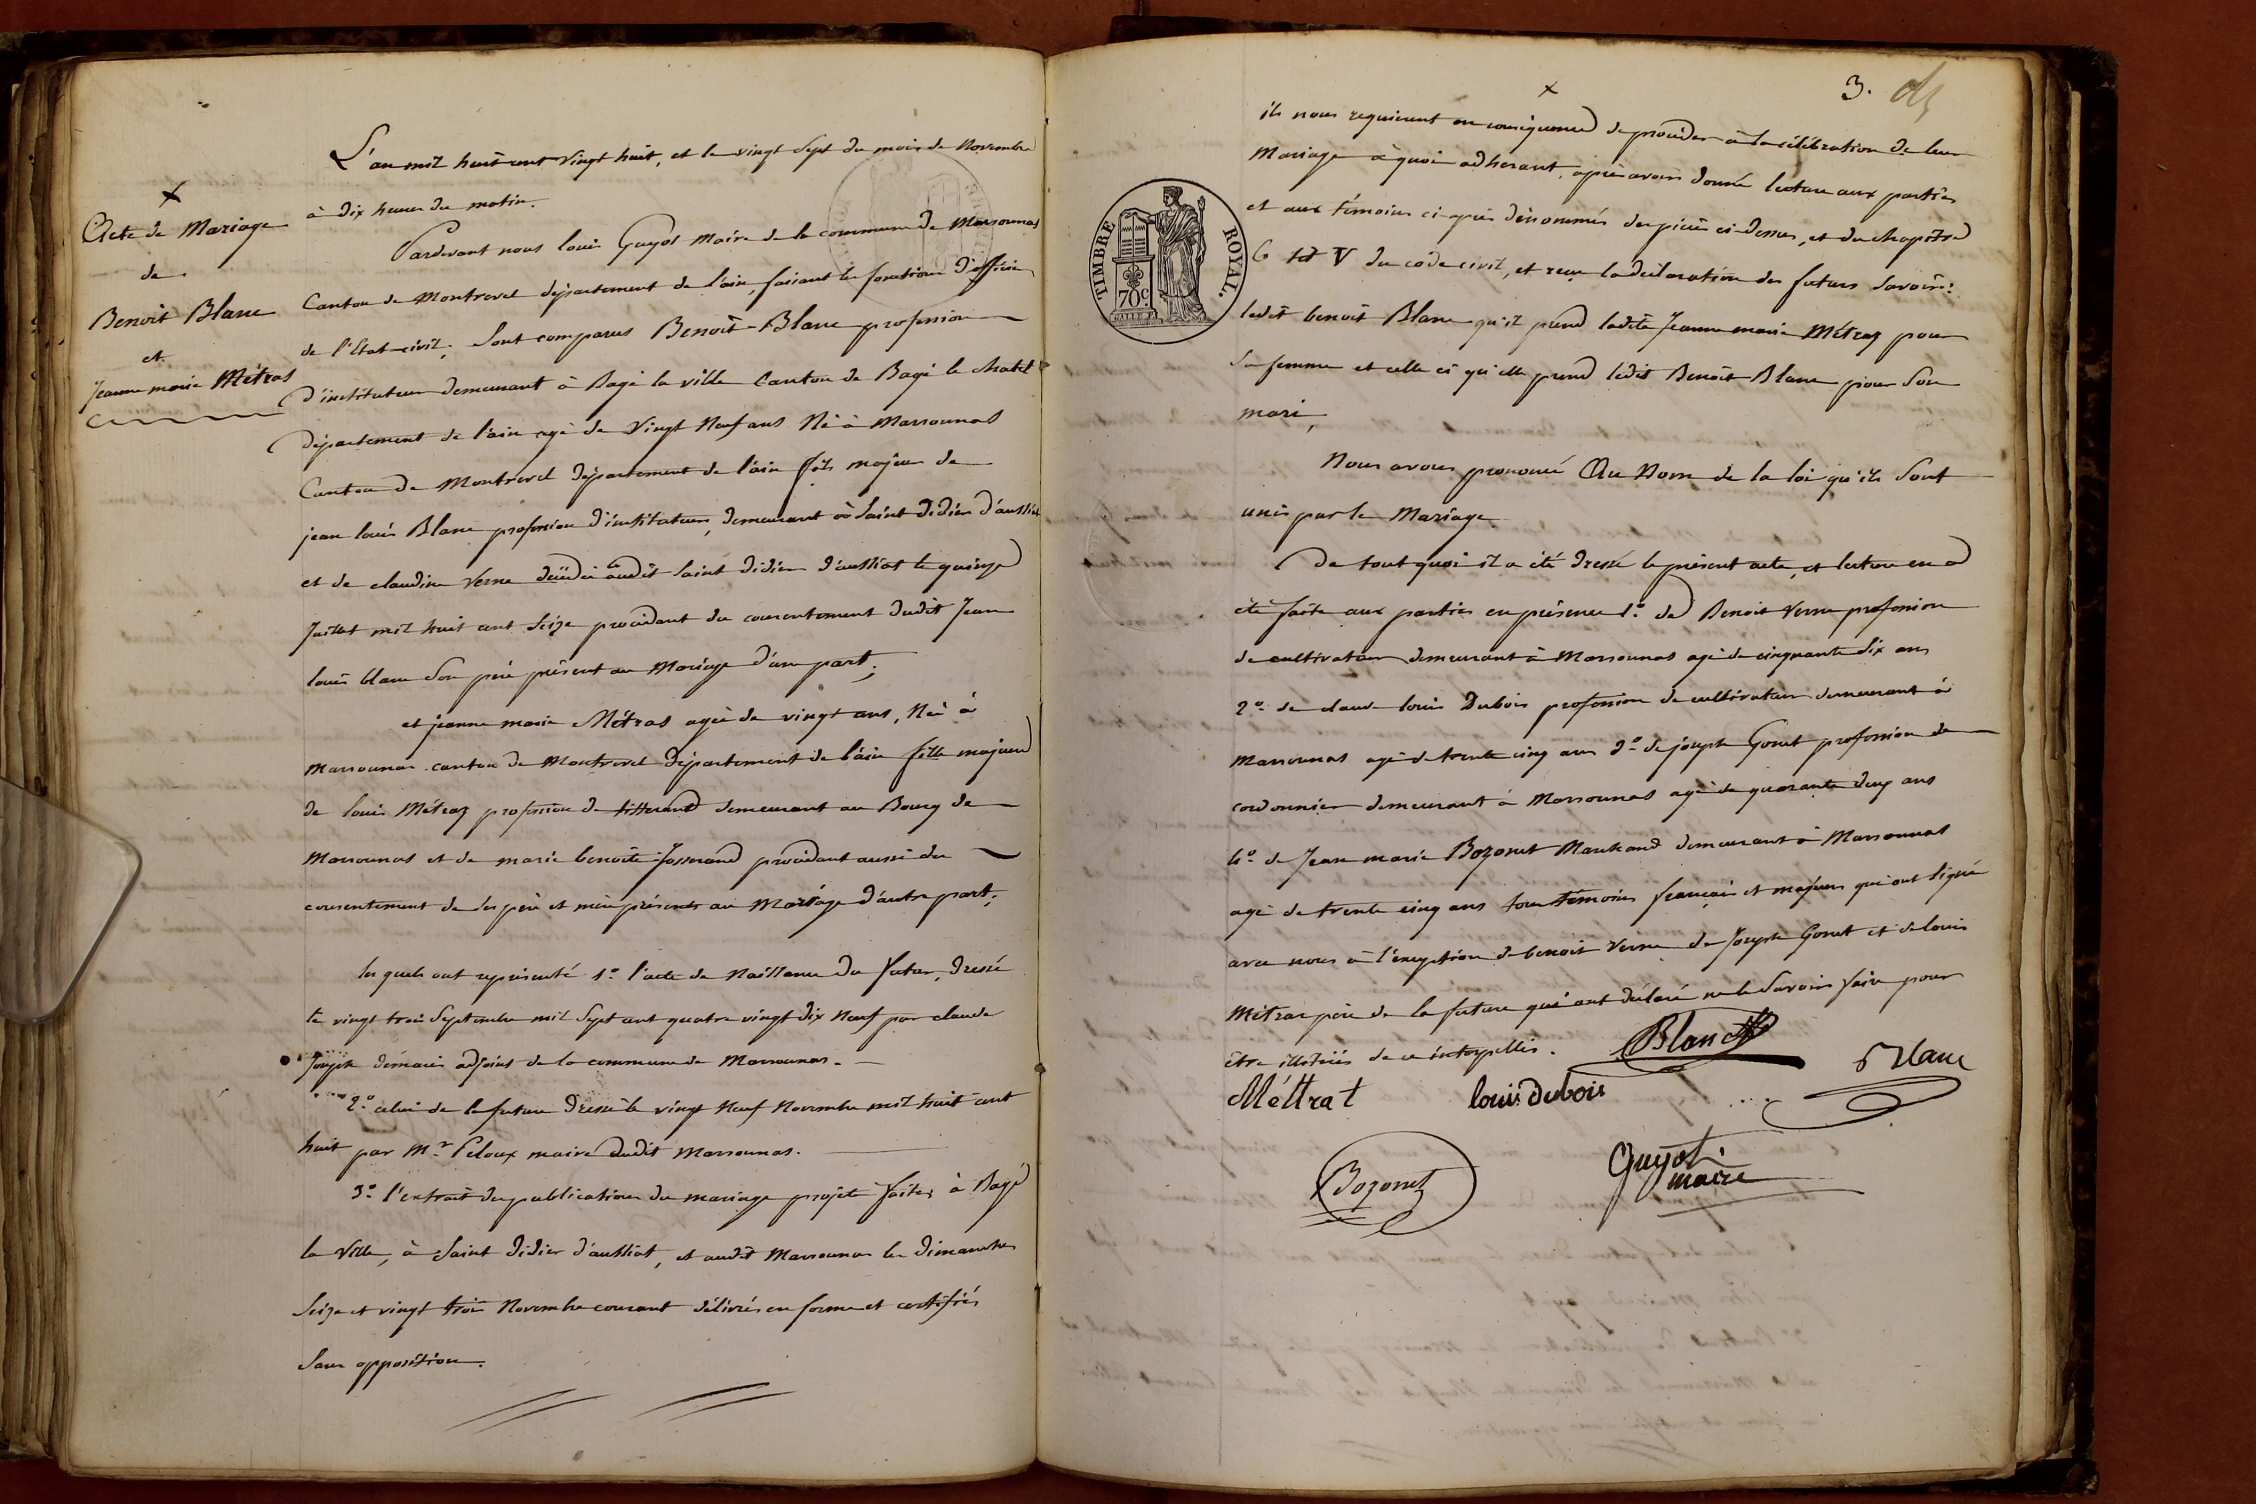 L'an mil huit cent vingt huit, et le vingt sept du mois de Novembre
à dix heures du matin.
Acte de Mariage
de
Benoit Blanc
et
Jeanne marie Métras
Pardevant nous louis Guyot Maire de la commune de Marsonnas
Canton de Montrevel département de l'ain, faisant les fonctions d'officier
de l'Etat-civil; sont comparus Benoit-Blanc profession
d'instituteur demeurant à Bagé la ville Canton de Bagé le chatel
département de l'ain agé de vingt Neuf ans Né à Marsonnas
Canton de Montrevel département de l'ain fils majeur de
jean louis Blanc profession d'instituteur, demeurant à Saint Didier d'aussiat
et de claudine Verne décédée audit Saint Didier d'aussiat le quinze
Juillet mil huit cent Seize procédant du consentement dudit Jean
louis blanc Son père présent au Mariage d'une part;
et jeanne marie Métras agée de vingt ans, Née à
Marsonnas canton de Montrevel département de l'ain fille majeure
de louis Métraz profession de tisserand demeurant au Bourg de
Marsonnas et de marie benoite Josserand procédant aussi du
consentement de ses père et mère présents au Mariage d'autre part;
lesquels ont représenté 1.º l'acte de Naissance du futur, dressé
le vingt trois Septembre mil Sept cent quatre vingt dix Neuf par claude
Joseph adjoint de la commune de Marsonnas.
2.º celui de la future dressé le vingt Neuf Novembre mil huit cent
huit par Mr. Peloux maire dudit Marsonnas.
3.º l'extrait des publications du mariage projeté faites à Bagé
la Ville, à Saint Didier d'aussiat, et audit Marsonnas les Dimanches
Seize et vingt trois Novembre courant délivrés en forme et certifiés
Sans opposition.
3.
ils nous requièrent en conséquence de procéder à la célébration de leur
Mariage à quoi adhérant, après avoir donné lecture aux parties
et aux témoins ci-après dénommés des pièces ci-dessus, et du chapitre
6 tit V du code civil, et reçu la déclaration des futurs Savoir:
ledit benoit Blanc qu'il prend ladite Jeanne marie Métraz pour
Sa femme et celle ci qu'elle prend ledit Benoit Blanc pour Son
mari,
TIMBRE ROYAL.
70c.
Nous avons prononcé Au Nom de la loi qu'ils Sont
unis par le Mariage
De tout quoi il a été dressé le présent acte, et lecture en a
été faite aux parties en présence 1.º de Benoit Verne profession
de cultivateur demeurant à Marsonnas agé de cinquante dix ans
2.º de claude louis Dubois profession de cultivateur demeurant à
Marsonnas agé de trente cinq ans 3.º de joseph Gonet profession de
cordonnier demeurant à Marsonnas agé de quarante deux ans
4.º de Jean marie Bozonet Marchand demeurant à Marsonnas
agé de trente cinq ans tous témoins français et majeurs qui ont signé
avec nous à l'exception de benoit Verne de Joseph Gonet et de louis
Métras père de la future qui ont déclaré ne le Savoir faire pour
être illétrés de ce interpellés.
Blanc
Méttrat
louis Dubois
Blanc
Bozonet
Guyot
maire